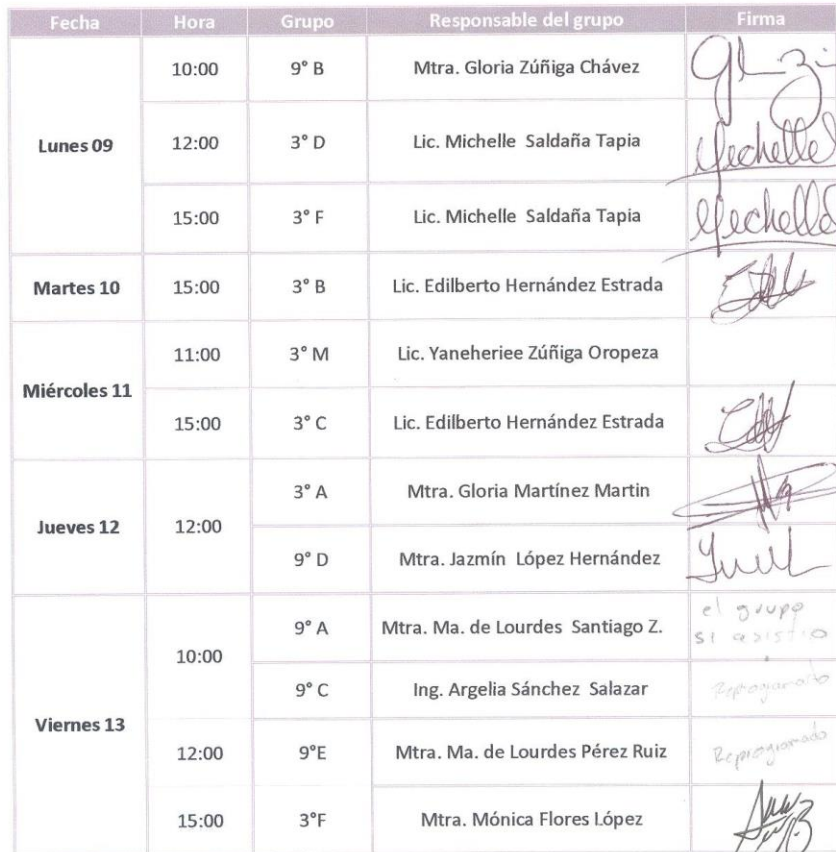 Fecha Hora Grupo Responsable del grupo Firma
Lunes 09
10:00 9° B Mtra. Gloria Zúñiga Chávez
12:00 3° D Lic. Michelle Saldaña Tapia Mechelle
15:00 3° F Lic. Michelle Saldaña Tapia Mechelle
Martes 10 15:00 3° B Lic. Edilberto Hernández Estrada
Miércoles 11
11:00 3° M Lic. Yaneheriee Zúñiga Oropeza
15:00 3° C Lic. Edilberto Hernández Estrada
Jueves 12 12:00
3° A Mtra. Gloria Martínez Martin
9° D Mtra. Jazmín López Hernández
Viernes 13
10:00
9° A Mtra. Ma. de Lourdes Santiago Z. el grupo
si asistio
9° C Ing. Argelia Sánchez Salazar Reprogramado
12:00 9°E Mtra. Ma. de Lourdes Pérez Ruiz Reprogramado
15:00 3°F Mtra. Mónica Flores López